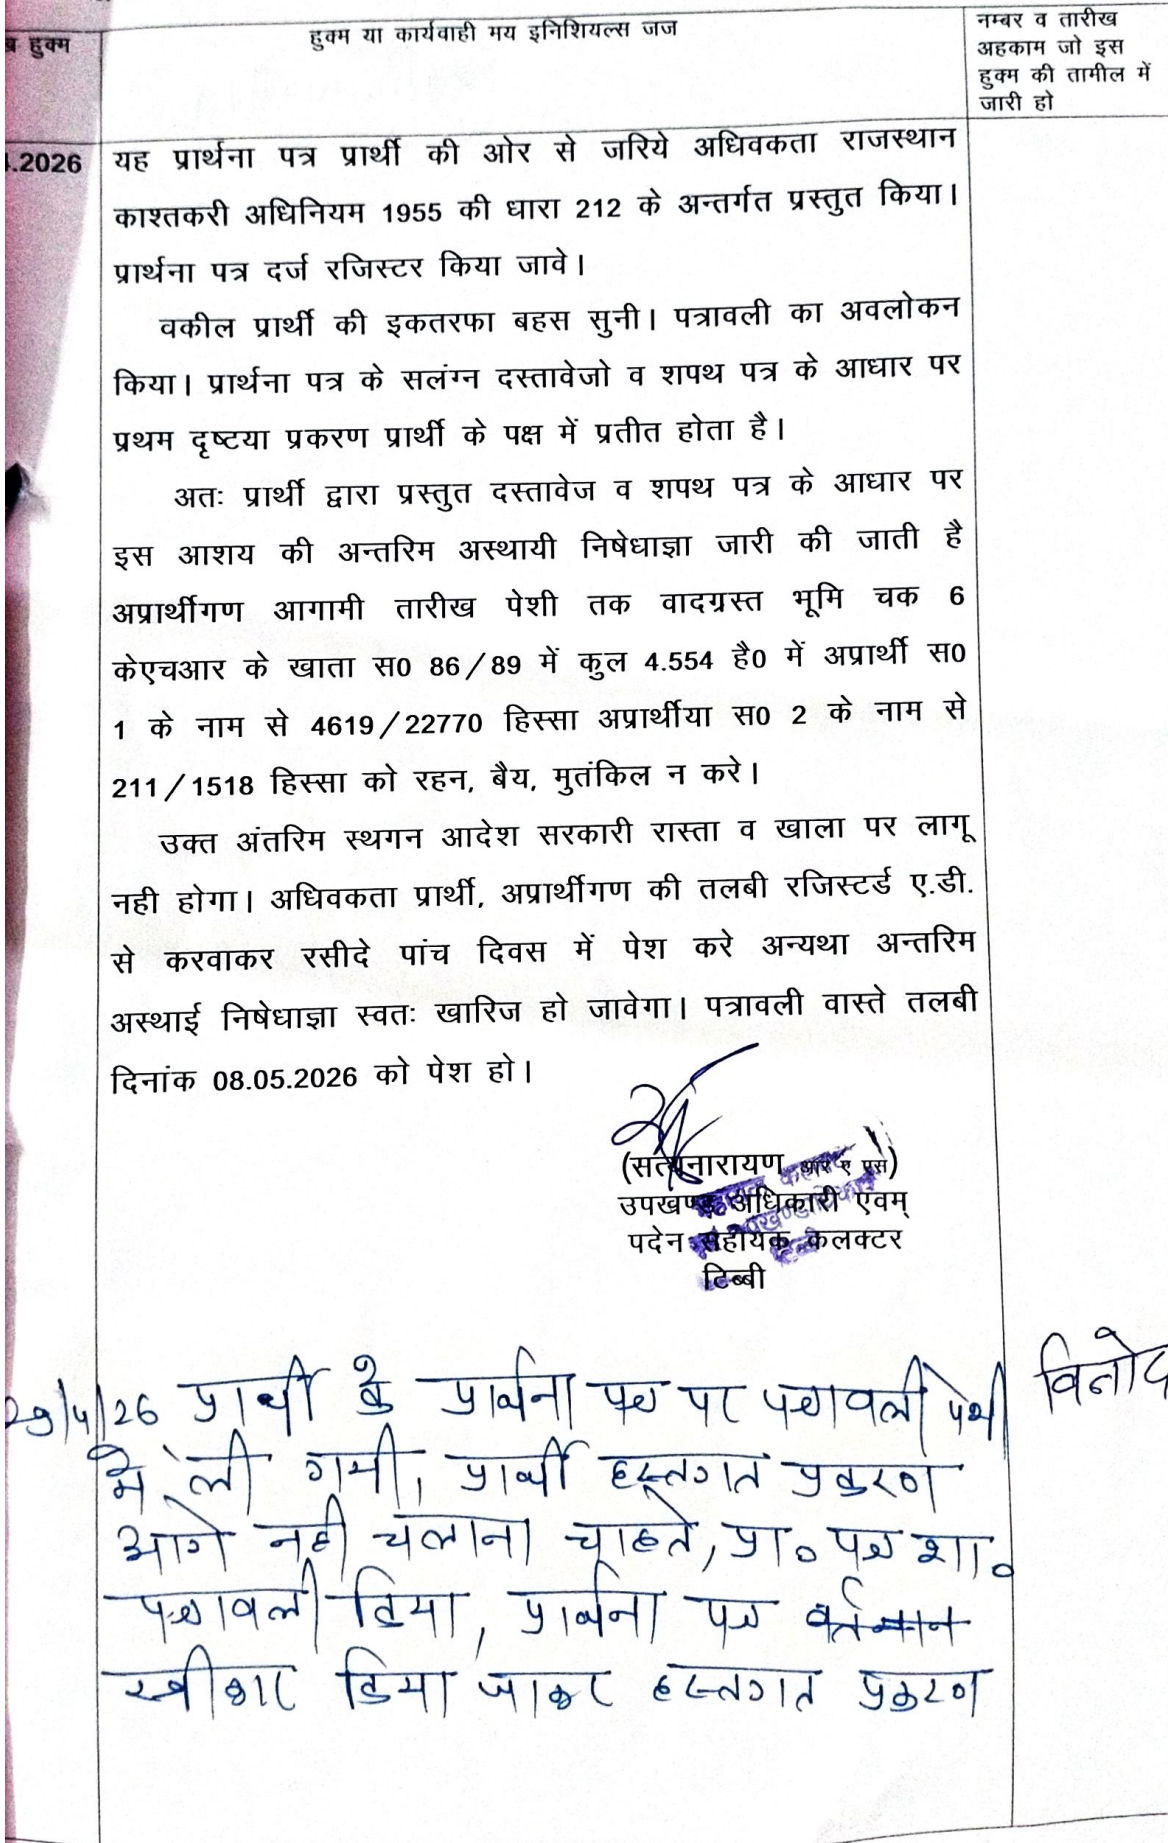 हुक्म
हुक्म या कार्यवाही मय इनिशियल्स जज
नम्बर व तारीख
अहकाम जो इस
हुक्म की तामील में
जारी हो
.2026
यह प्रार्थना पत्र प्रार्थी की ओर से जरिये अधिवकता राजस्थान
काश्तकरी अधिनियम 1955 की धारा 212 के अन्तर्गत प्रस्तुत किया।
प्रार्थना पत्र दर्ज रजिस्टर किया जावे।
वकील प्रार्थी की इकतरफा बहस सुनी। पत्रावली का अवलोकन
किया। प्रार्थना पत्र के सलंग्न दस्तावेजो व शपथ पत्र के आधार पर
प्रथम दृष्टया प्रकरण प्रार्थी के पक्ष में प्रतीत होता है।
अतः प्रार्थी द्वारा प्रस्तुत दस्तावेज व शपथ पत्र के आधार पर
इस आशय की अन्तरिम अस्थायी निषेधाज्ञा जारी की जाती है
अप्रार्थीगण आगामी तारीख पेशी तक वादग्रस्त भूमि चक 6
केएचआर के खाता स0 86/89 में कुल 4.554 है0 में अप्रार्थी स0
1 के नाम से 4619/22770 हिस्सा अप्रार्थीया स0 2 के नाम से
211/1518 हिस्सा को रहन, बैय, मुतंकिल न करे।
उक्त अंतरिम स्थगन आदेश सरकारी रास्ता व खाला पर लागू
नही होगा। अधिवकता प्रार्थी, अप्रार्थीगण की तलबी रजिस्टर्ड ए.डी.
से करवाकर रसीदे पांच दिवस में पेश करे अन्यथा अन्तरिम
अस्थाई निषेधाज्ञा स्वतः खारिज हो जावेगा। पत्रावली वास्ते तलबी
दिनांक 08.05.2026 को पेश हो।
(सत्यनारायण आर ए एस)
उपखण्ड अधिकारी एवम्
पदेन सहायक कलक्टर
टिब्बी
/4/26 प्रार्थी के प्रार्थना पत्र पर पत्रावली पेशी
में ली गयी, प्रार्थी हस्तगत प्रकरण
आगे नही चलाना चाहते, प्रा० पत्र शा०
पत्रावली किया, प्रार्थना पत्र वर्तमान
स्वीकार किया जाकर हस्तगत प्रकरण
विनोद